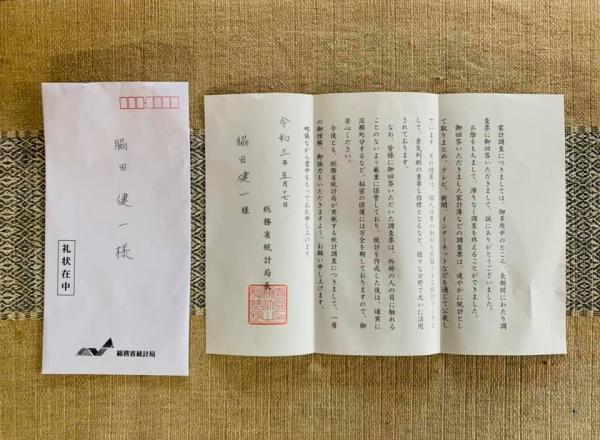 脇田 健一 様
礼状在中
総務省統計局
家計調査につきましては、御多用中のところ、長期間にわたり調
査票に御回答いただきまして、誠にありがとうございました。
お陰をもちまして、滞りなく調査を終えることができました。
御回答いただきました家計簿などの調査票は、速やかに統計とし
て取りまとめ、テレビ、新聞、インターネットなどを通じて公表し
ています。その結果は、個人消費の動向を把握できる統計データと
して、景気判断の重要な指標となるなど、様々な分野で大いに活用
されております。
なお、皆様に御回答いただいた調査票は、外部の人の目に触れる
ことのないよう厳重に保管しており、統計を作成した後は、確実に
溶解処分するなど、秘密の保護には万全を期しておりますので、御
安心ください。
今後とも、総務省統計局が実施する統計調査につきまして、一層
の御理解、御協力をいただきますよう、お願い申し上げます。
略儀ながら書中をもってお礼申し上げます。
令和三年五月十七日
脇田 健一 様
総務省統計局長